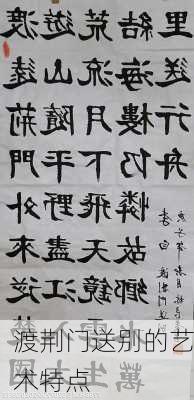 渡遠荊門外來從楚國
遊山隨平野盡江入大
荒流月下飛天鏡雲生
結海樓仍憐故鄉水萬
里送行舟
李白
渡荆门送别的艺
术特点